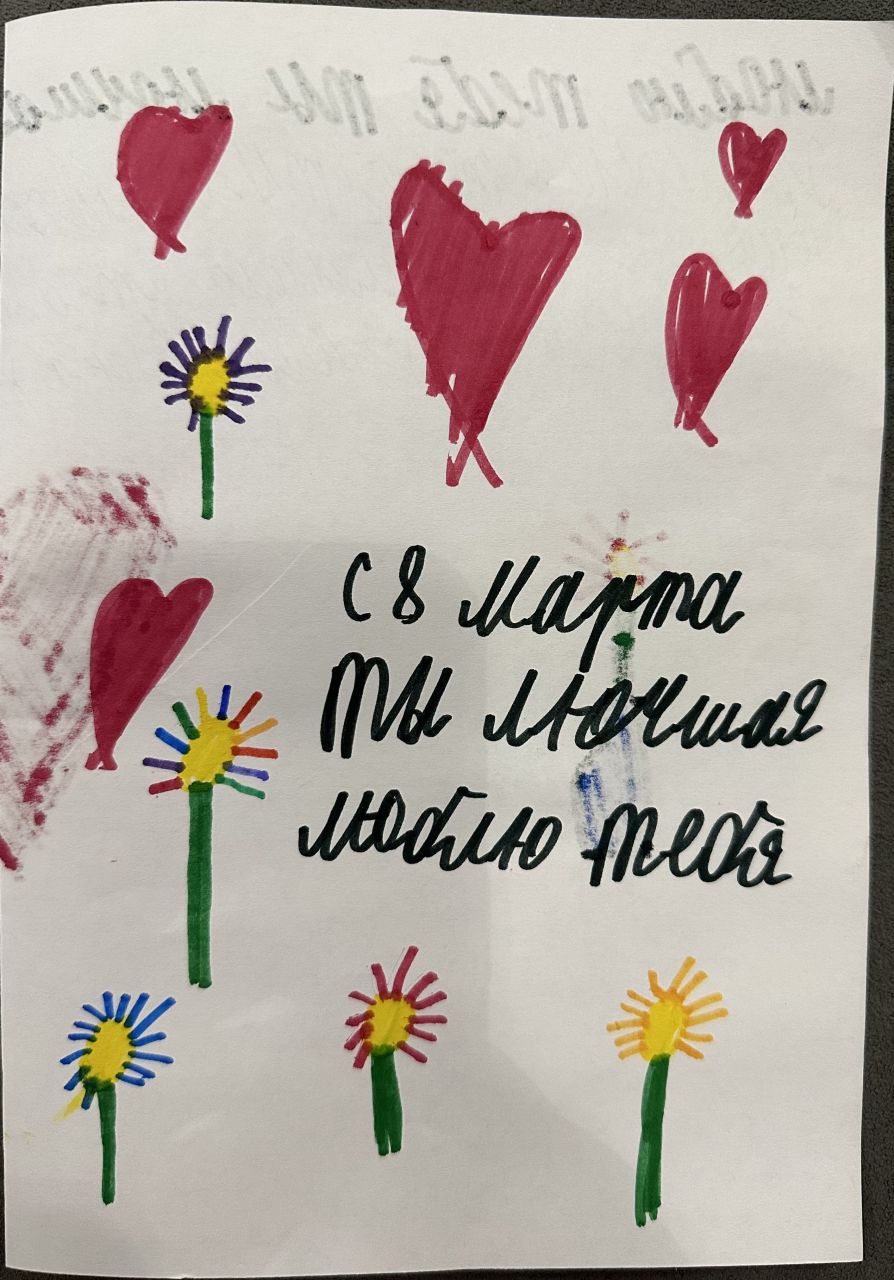 с 8 Марта
Ты лючшая
люблю тебя